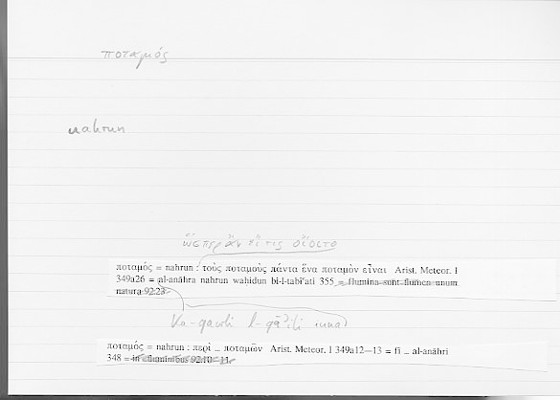 ποταμός
nahrun
ὥσπερ ἂν εἴ τις οἴοιτο
ποταμός = nahrun : τοὺς ποταμοὺς πάντα ἕνα ποταμὸν εἶναι Arist. Meteor. I
349a26 = al-anāhra nahrun wahidun bi-l-tabī'ati 355 = flumina sunt flumen unum
natura 92.23.
Ka-qawli l-qā'ili inna
ποταμός = nahrun : περὶ _ ποταμῶν Arist. Meteor. I 349a12—13 = fī _ al-anāhri
348 = in fluminibus 92.10-11.